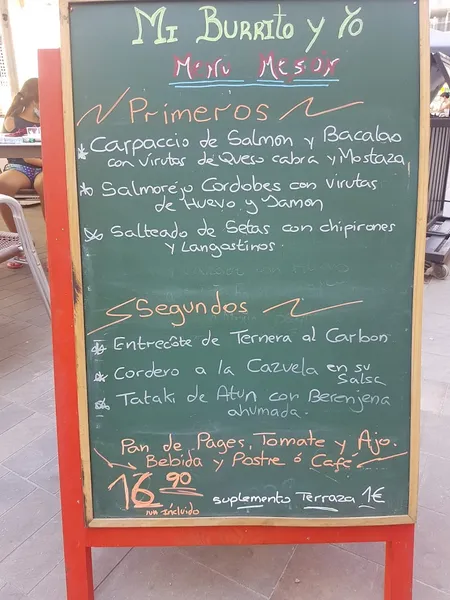 Mi Burrito y Yo
Menu Mesón
Primeros
* Carpaccio de Salmon y Bacalao
con virutas de Queso cabra y Mostaza
* Salmorejo Cordobes con virutas
de Huevo y Jamon
* Salteado de Setas con chipirones
y Langostinos.
Segundos
* Entrecôte de Ternera al Carbon
* Cordero a la Cazuela en su
Salsa
* Tataki de Atun con Berenjena
ahumada.
Pan de Pages, Tomate y Ajo.
Bebida y Postre ó Café
16 90
IVA Incluido
suplemento Terraza 1€